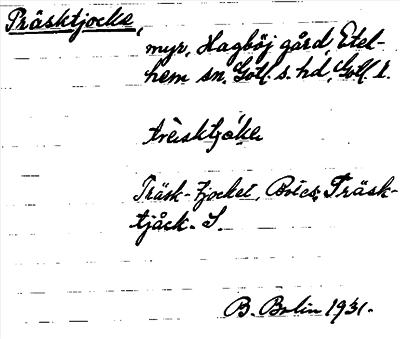 Träsktjocke,
myr, Hagböj gård, Etel-
hem sn, Gotl. s. hd, Gotl. l.
Träsk-tjocket, Träsk-
tjåck. S.
B. Bolin 1931.